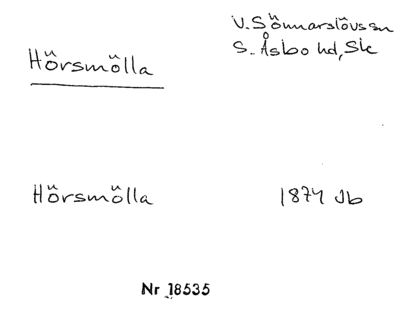 V. Sönnarslövs sn
S. Åsbo hd, Sk
Hörsmölla
Hörsmölla 1874 Jb
Nr 18535